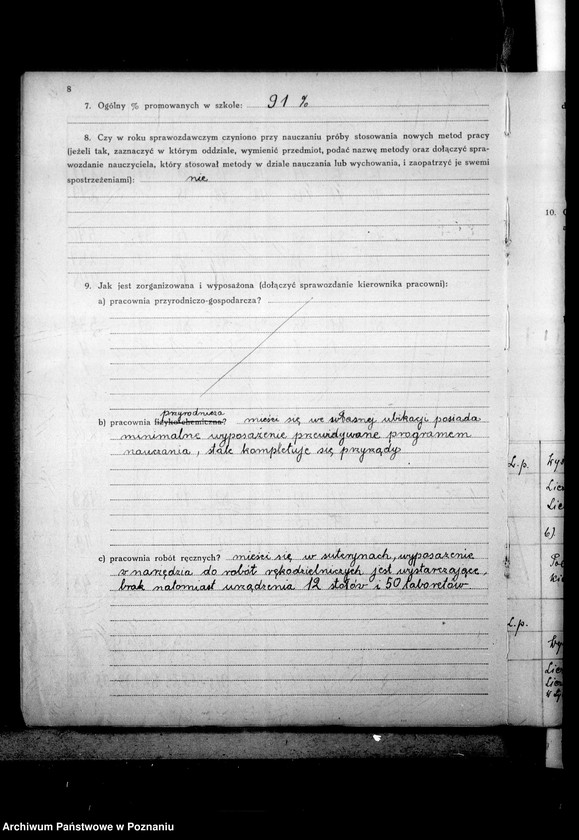 8
7. Ogólny % promowanych w szkole: 91 %
8. Czy w roku sprawozdawczym czyniono przy nauczaniu próby stosowania nowych metod pracy
(jeżeli tak, zaznaczyć w którym oddziale, wymienić przedmiot, podać nazwę metody oraz dołączyć spra-
wozdanie nauczyciela, który stosował metody w dziale nauczania lub wychowania, i zaopatrzyć je swemi
spostrzeżeniami): nie
9. Jak jest zorganizowana i wyposażona (dołączyć sprawozdanie kierownika pracowni):
a) pracownia przyrodniczo-gospodarcza?
przyrodnicza
b) pracownia fizyko-chemiczna? mieści się we własnej ubikacji posiada
minimalne wyposażenie przewidywane programem
nauczania, stale kompletuje się przyrządy
c) pracownia robót ręcznych? mieści się w suterynach, wyposażenie
w narzędzia do robót rękodzielniczych jest wystarczające,
brak natomiast urządzenia 12 stołów i 50 taboretów
10.
L.p.
Lie
Lie
6)
L.p.
Lie
Archiwum Państwowe w Poznaniu